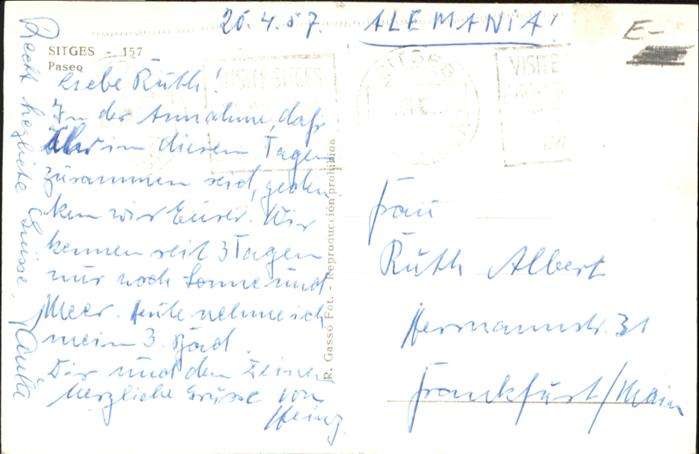 20.4.57. ALEMANIA!
E-
SITGES - 157
Paseo
Liebe Ruth!
In der Annahme, daß
Ihr in diesen Tagen
zusammen seid, geden-
ken wir Euer. Wir
kennen seit 3 Tagen
nur noch Sonne und
Meer. Heute nehme ich
mein 3. Bad.
Dir und den Deinen
herzliche Grüsse von
Heinz.
Recht herzliche Grüsse
R. Gassó Fot. - Reproducción prohibida
Frau
Ruth Albert
Herrmannstr. 31
Frankfurt/Main